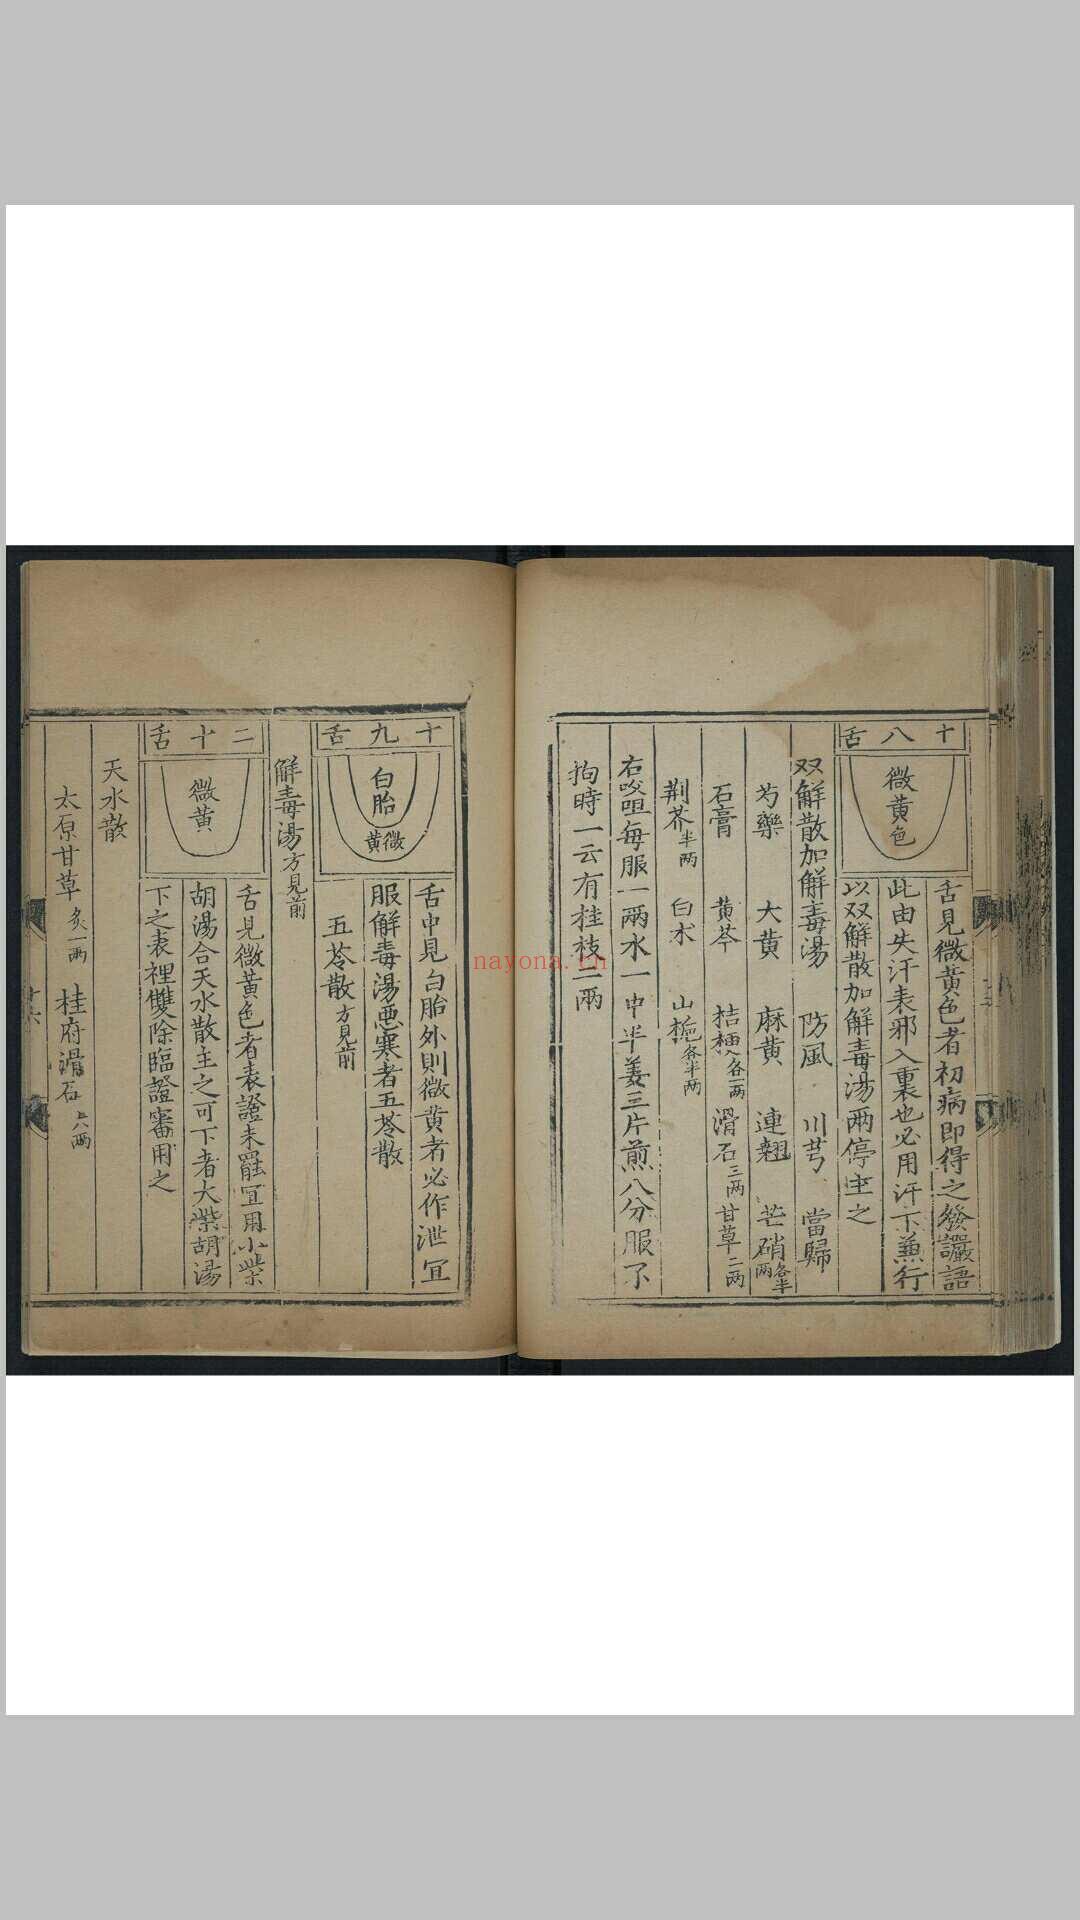 十八舌
微黄色
舌見微黄色者初病即得之發讝語
此由失汗表邪入裏也必用汗下兼行
以双解散加解毒湯兩停主之
双解散加解毒湯 防風 川芎 當歸
芍藥 大黄 麻黄 連翹 芒硝各半兩
石膏 黄芩 桔梗各一兩 滑石三兩 甘草二兩
荆芥半兩 白术 山梔各半兩
右㕮咀每服一兩水一中半姜三片煎八分服不
拘時一云有桂枝二兩
十九舌
白胎
微黄
舌中見白胎外則微黄者必作泄宜
服解毒湯惡寒者五苓散
五苓散方見前
解毒湯方見前
二十舌
微黄
舌見微黄色者表證未罷宜用小柴
胡湯合天水散主之可下者大柴胡湯
下之表裡雙除臨證審用之
天水散
太原甘草炙一兩 桂府滑石六兩
nayona.cn